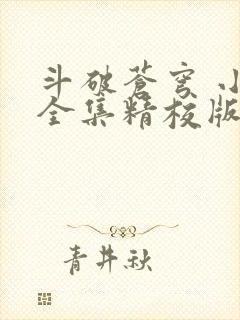 斗破苍穹 小
全集精校版
青井秋